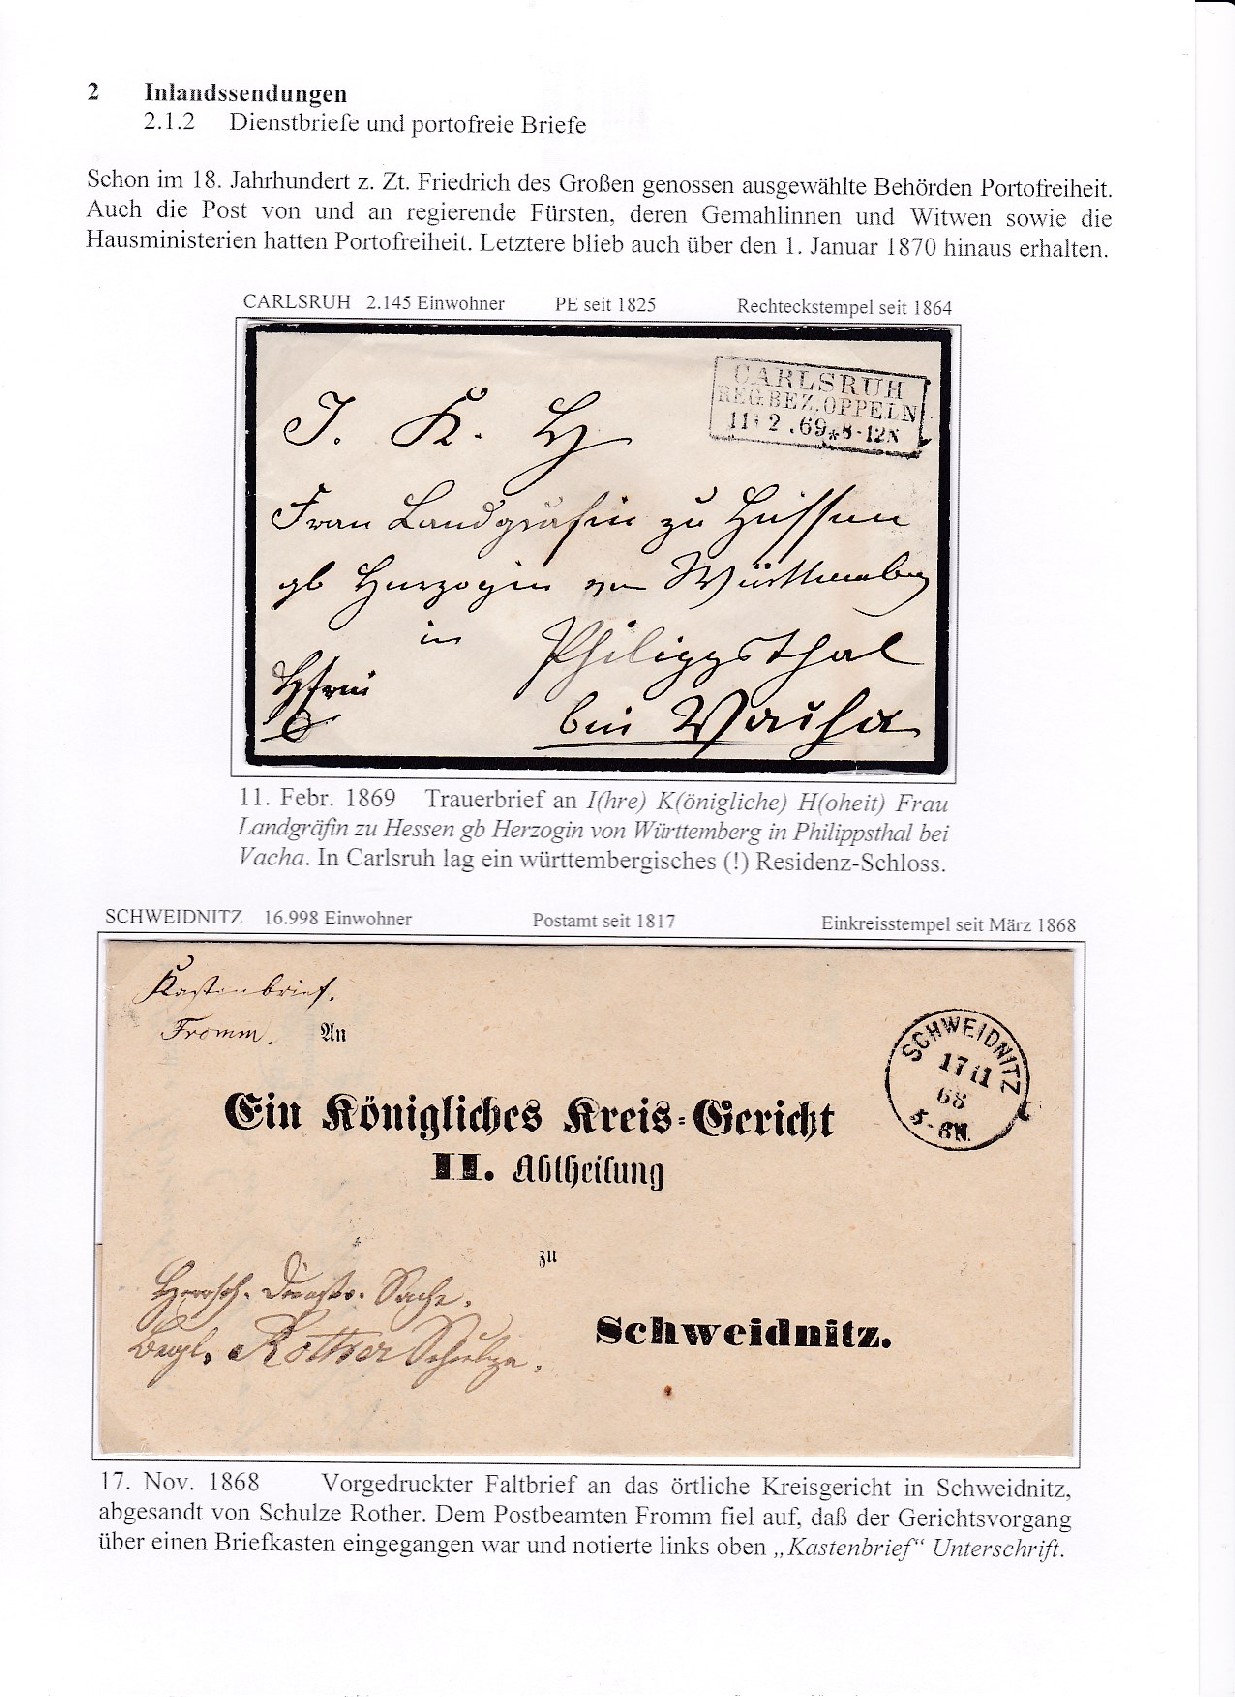 2 Inlandssendungen
2.1.2 Dienstbriefe und portofreie Briefe
Schon im 18. Jahrhundert z. Zt. Friedrich des Großen genossen ausgewählte Behörden Portofreiheit.
Auch die Post von und an regierende Fürsten, deren Gemahlinnen und Witwen sowie die
Hausministerien hatten Portofreiheit. Letztere blieb auch über den 1. Januar 1870 hinaus erhalten.
CARLSRUH 2.145 Einwohner PE seit 1825 Rechteckstempel seit 1864
CARLSRUH
REG.BEZ.OPPELN
11 2 .69 * 8-12N
J. K. H
Frau Landgräfin zu Hessen
gb Herzogin von Württemberg
in Philippsthal
bei Vacha
11. Febr. 1869 Trauerbrief an I(hre) K(önigliche) H(oheit) Frau
Landgräfin zu Hessen gb Herzogin von Württemberg in Philippsthal bei
Vacha. In Carlsruh lag ein württembergisches (!) Residenz-Schloss.
SCHWEIDNITZ 16.998 Einwohner Postamt seit 1817 Einkreisstempel seit März 1868
Kastenbrief.
Fromm. An
SCHWEIDNITZ
17 11
68
5-6N.
Ein Königliches Kreis-Gericht
II. Abtheilung
zu
Schweidnitz.
Herrsch. Dienst. Sache.
Rother Schulze.
17. Nov. 1868 Vorgedruckter Faltbrief an das örtliche Kreisgericht in Schweidnitz,
abgesandt von Schulze Rother. Dem Postbeamten Fromm fiel auf, daß der Gerichtsvorgang
über einen Briefkasten eingegangen war und notierte links oben „Kastenbrief“ Unterschrift.